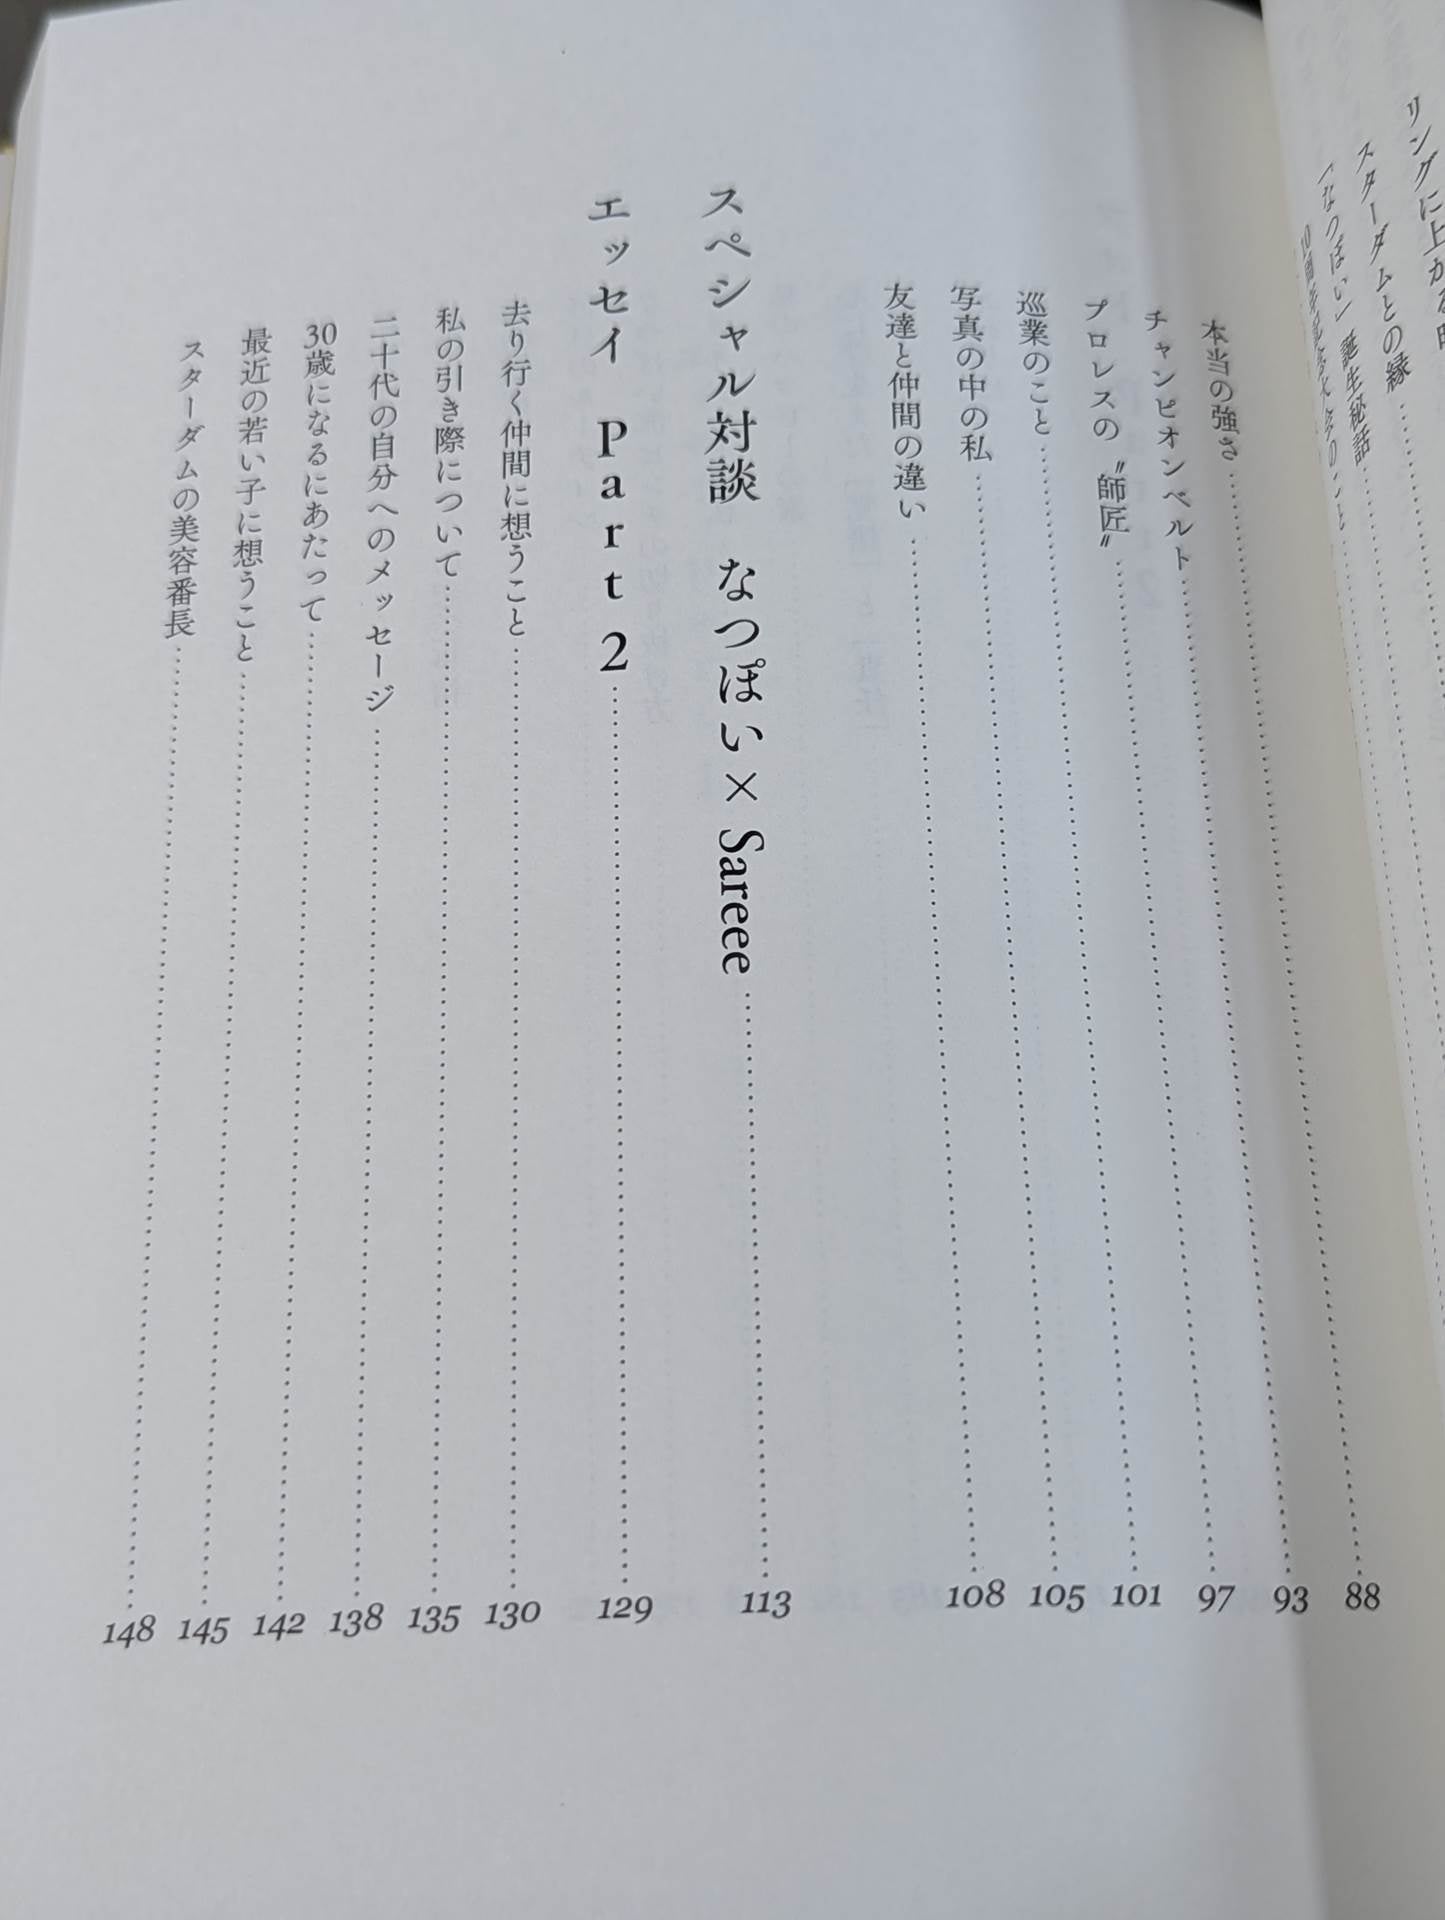 リングに上がる
スターダムとの縁
「なつぽい」誕生秘話
本当の強さ 88
チャンピオンベルト 93
プロレスの〝師匠〟 97
巡業のこと 101
写真の中の私 105
友達と仲間の違い 108
スペシャル対談 なつぽい×Sareee 113
エッセイ Part 2 129
去り行く仲間に想うこと 130
私の引き際について 135
二十代の自分へのメッセージ 138
30歳になるにあたって 142
最近の若い子に想うこと 145
スターダムの美容番長 148